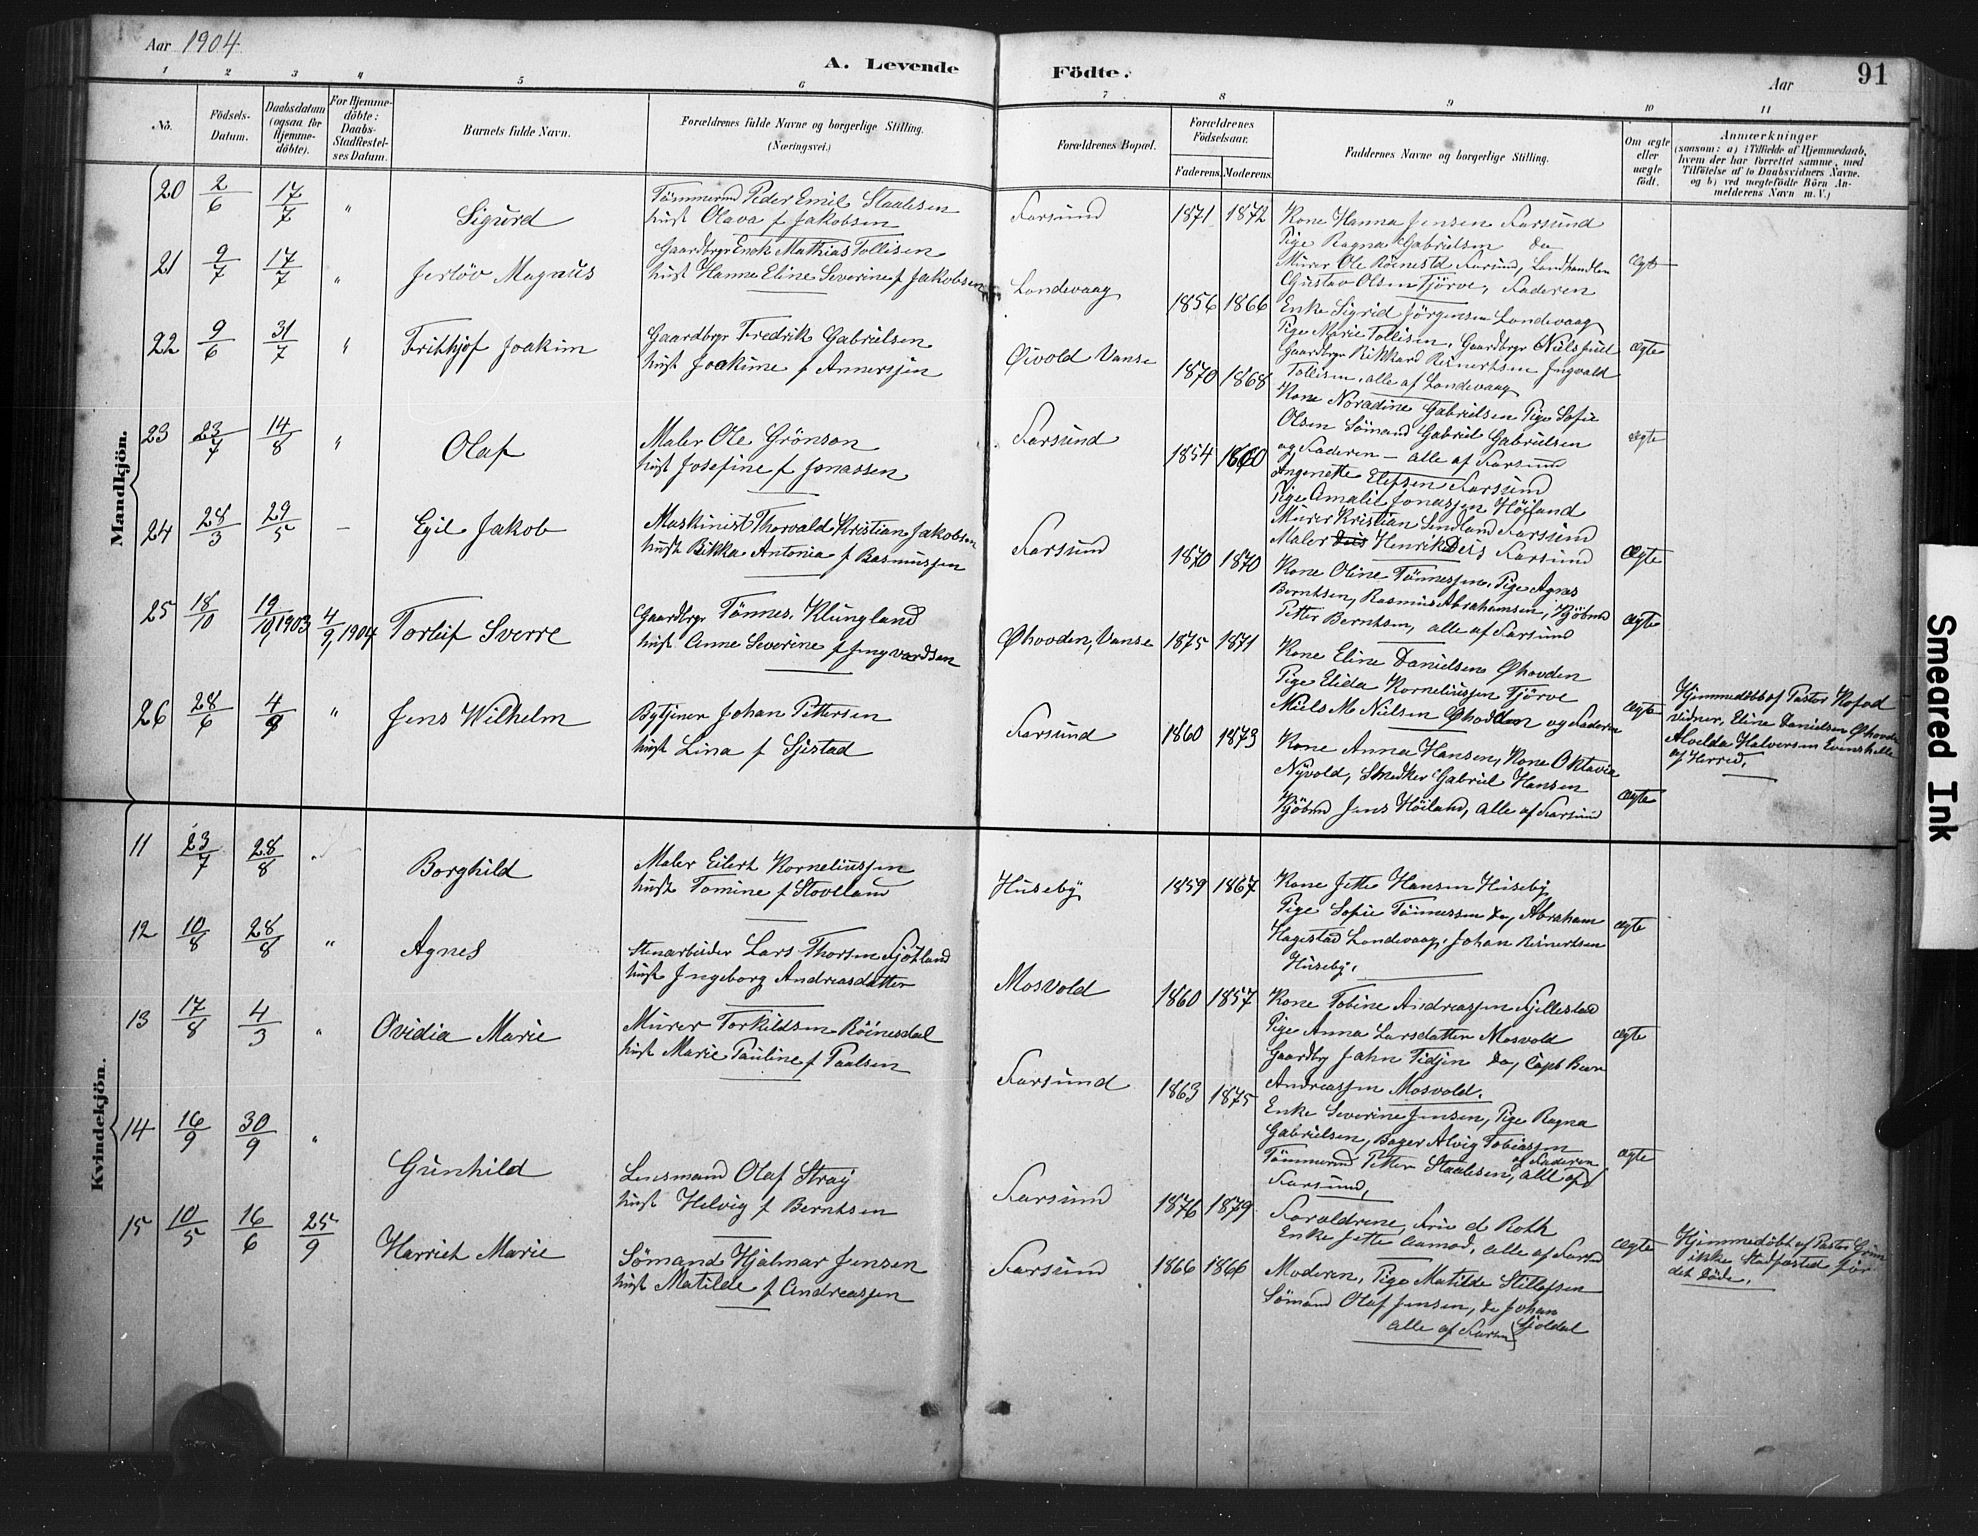 Aar 1904
A. Levende Födte.
Aar
91
1 2 3 4 5 6 7 8 9 10 11
No.
Födsels-Datum.
Daabsdatum (ogsaa for Hjemme-döbte).
For Hjemme-döbte: Daabs-Stadfæstel-ses Datum.
Barnets fulde Navn.
Forældrenes fulde Navne og borgerlige Stilling. (Næringsvei.)
Forældrenes Bopæl.
Forældrenes Födselsaar.
Faderens. Moderens.
Faddernes Navne og borgerlige Stilling.
Om ægte eller uægte födt.
Anmærkninger
(saasom: a) i Tilfælde af Hjemmedaab, hvem der har forrettet samme, med Tilföielse af to Daabsvidners Navne. og b) ved uægtefödte Börn An-melderens Navn m. V.)
Mandkjön.
20 2/6 17/7 " Sigurd
Tömmermd Peder Emil Staalesen
hust Olava f Jakobsen
Farsund 1871 1872
Kone Hanna Jensen Farsund
Pige Ragna Gabrielsen do
Murer Ole Röinestd Farsund, Landhandler
Gustav Olsen Tjörve, Faderen
Ægte
21 9/7 17/7 " Magnus
Gaardbrgr Enok Mathias Tollisen
hust Hanne Eline Severine f Jakobsen
Londevaag 1856 1866
Enke Sigrid Jörgensen Londevaag
Pige Marie Tollisen, Gaardbrgr
Gaardbrgr Rikkard Reinertsen Ingvald
Tollisen, alle af Londevaag
Ægte
22 9/6 31/7 " Frithjof Joakim
Gaardbrgr Fredrik Gabrielsen
hust Joakime f Annerssen
Øivold Vanse 1870 1868
Kone Noradine Gabrielsen Pige Sofie
Olsen Sömand Gabriel Gabrielsen
og Faderen — alle af Farsund
ægte
23 23/7 14/8 " Olaf
Maler Ole Grönson
hust Josefine f Jonassen
Farsund 1854 1860
Angenette Elefsen Farsund
Pige Amalie Jonassen Höiland
Murer Kristian Farsund
Maler Henrik Farsund
Ægte
24 28/3 29/5 — Egil Jakob
Maskinist Thorvald Kristian Jakobsen
hust Rikka Antonia f Rasmussen
Farsund 1870 1870
Kone Oline Tönnessen, Pige Agnes
Berntsen, Rasmus Abrahamsen, Kjöbmd
Petter Berntsen, alle af Farsund
ægte
25 18/10 19/10 1903 4/9 1904 Torleif Sverre
Gaardbrgr Tönnes Klungland
hust Anne Severine f Ingvardsen
Øhovden, Vanse 1875 1871
Kone Eline Danielsen Øhovden
Pige Elida Korneliussen Tjörve
Niels M Nielsen Øhovden og Faderen
ægte
Hjemmedöbt af Pastor Kofod
vidner, Eline Danielsen Øhovden
Alvelda Halversen
af Herred.
26 28/6 4/9 " Jens Wilhelm
Bytjener Johan Pettersen
hust Lina f Sjistad
Farsund 1860 1873
Kone Anna Hansen, Kone Oktavia
Nyvold, Snedker Gabriel Hansen
Kjöbmd Jens Höiland, alle af Farsund
ægte
Kvindekjön.
11 23/7 28/8 " Borghild
Maler Eilert Korneliussen
hust Tomine f Stoveland
Huseby 1859 1867
Kone Jette Hansen Huseby
Pige Sofie Tönnessen do, Abraham
Hagestad Londevaag, Johan Reinertsen
Huseby.
ægte
12 10/8 28/8 " Agnes
Stenarbeider Lars Thorsen Fjötland
hust Ingeborg Andreasdatter
Mosvold 1860 1857
Kone Tobine Andreassen Fjellestad
Pige Anna Larsdatter Mosvold
Gaardbg Jahn Tidjen do, Capt Bern
Andreassen Mosvold.
ægte
13 17/8 4/3 " Ovidia Marie
Murer Torkildsen Röinesdal
hust Marie Pauline f Paulsen
Farsund 1863 1875
Enke Severine Jensen, Pige Ragna
Gabrielsen, Bager Alvig Tobiassen
og Faderen
Tömmermd Petter Staalesen, alle af
Farsund,
ægte
14 16/9 30/9 " Gunhild
Lensmand Olaf Stray
hust Helvig f Berntsen
Farsund 1876 1879
Foraldrene, Frie d Roth
Enke Jette Aamod, alle af Farsd
Ægte
15 10/5 16/6 25/9 Harriet Marie
Sömand Hjalmar Jensen
hust Matilde f Andreassen
Farsund 1866 1866
Moderen, Pige Matilde Stillefsen
Sömand Olaf Jensen, do Johan
Sjoldal
alle af Farsun
Hjemmedöbt af Pastor Grim
ikke Stadfæsted för
det döde.
Smeared Ink